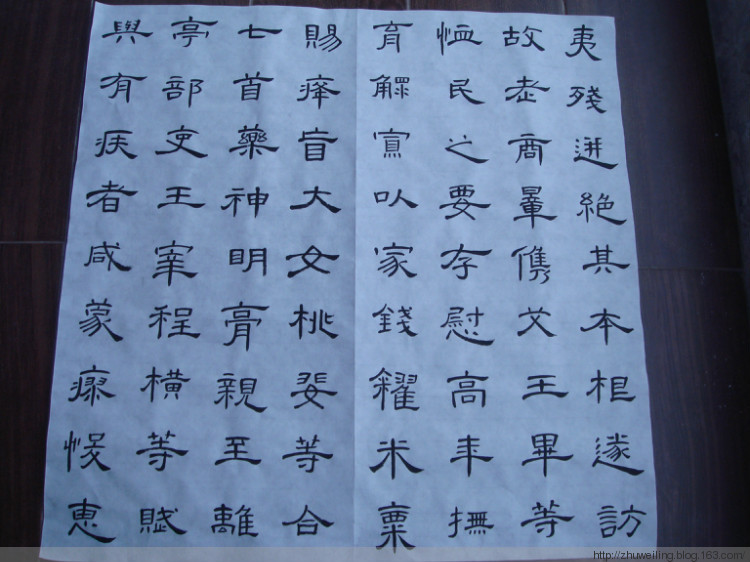 夷殘迸絕其本根遂訪
故老商量儁艾王畢等
恤民之要存慰高年撫
育鰥寡以家錢糴米粟
賜癃盲大女桃婓等合
七首藥神明膏親至離
亭部吏王宰程橫等賦
與有疾者咸蒙瘳悛惠
http://zhuweiling.blog.163.com/